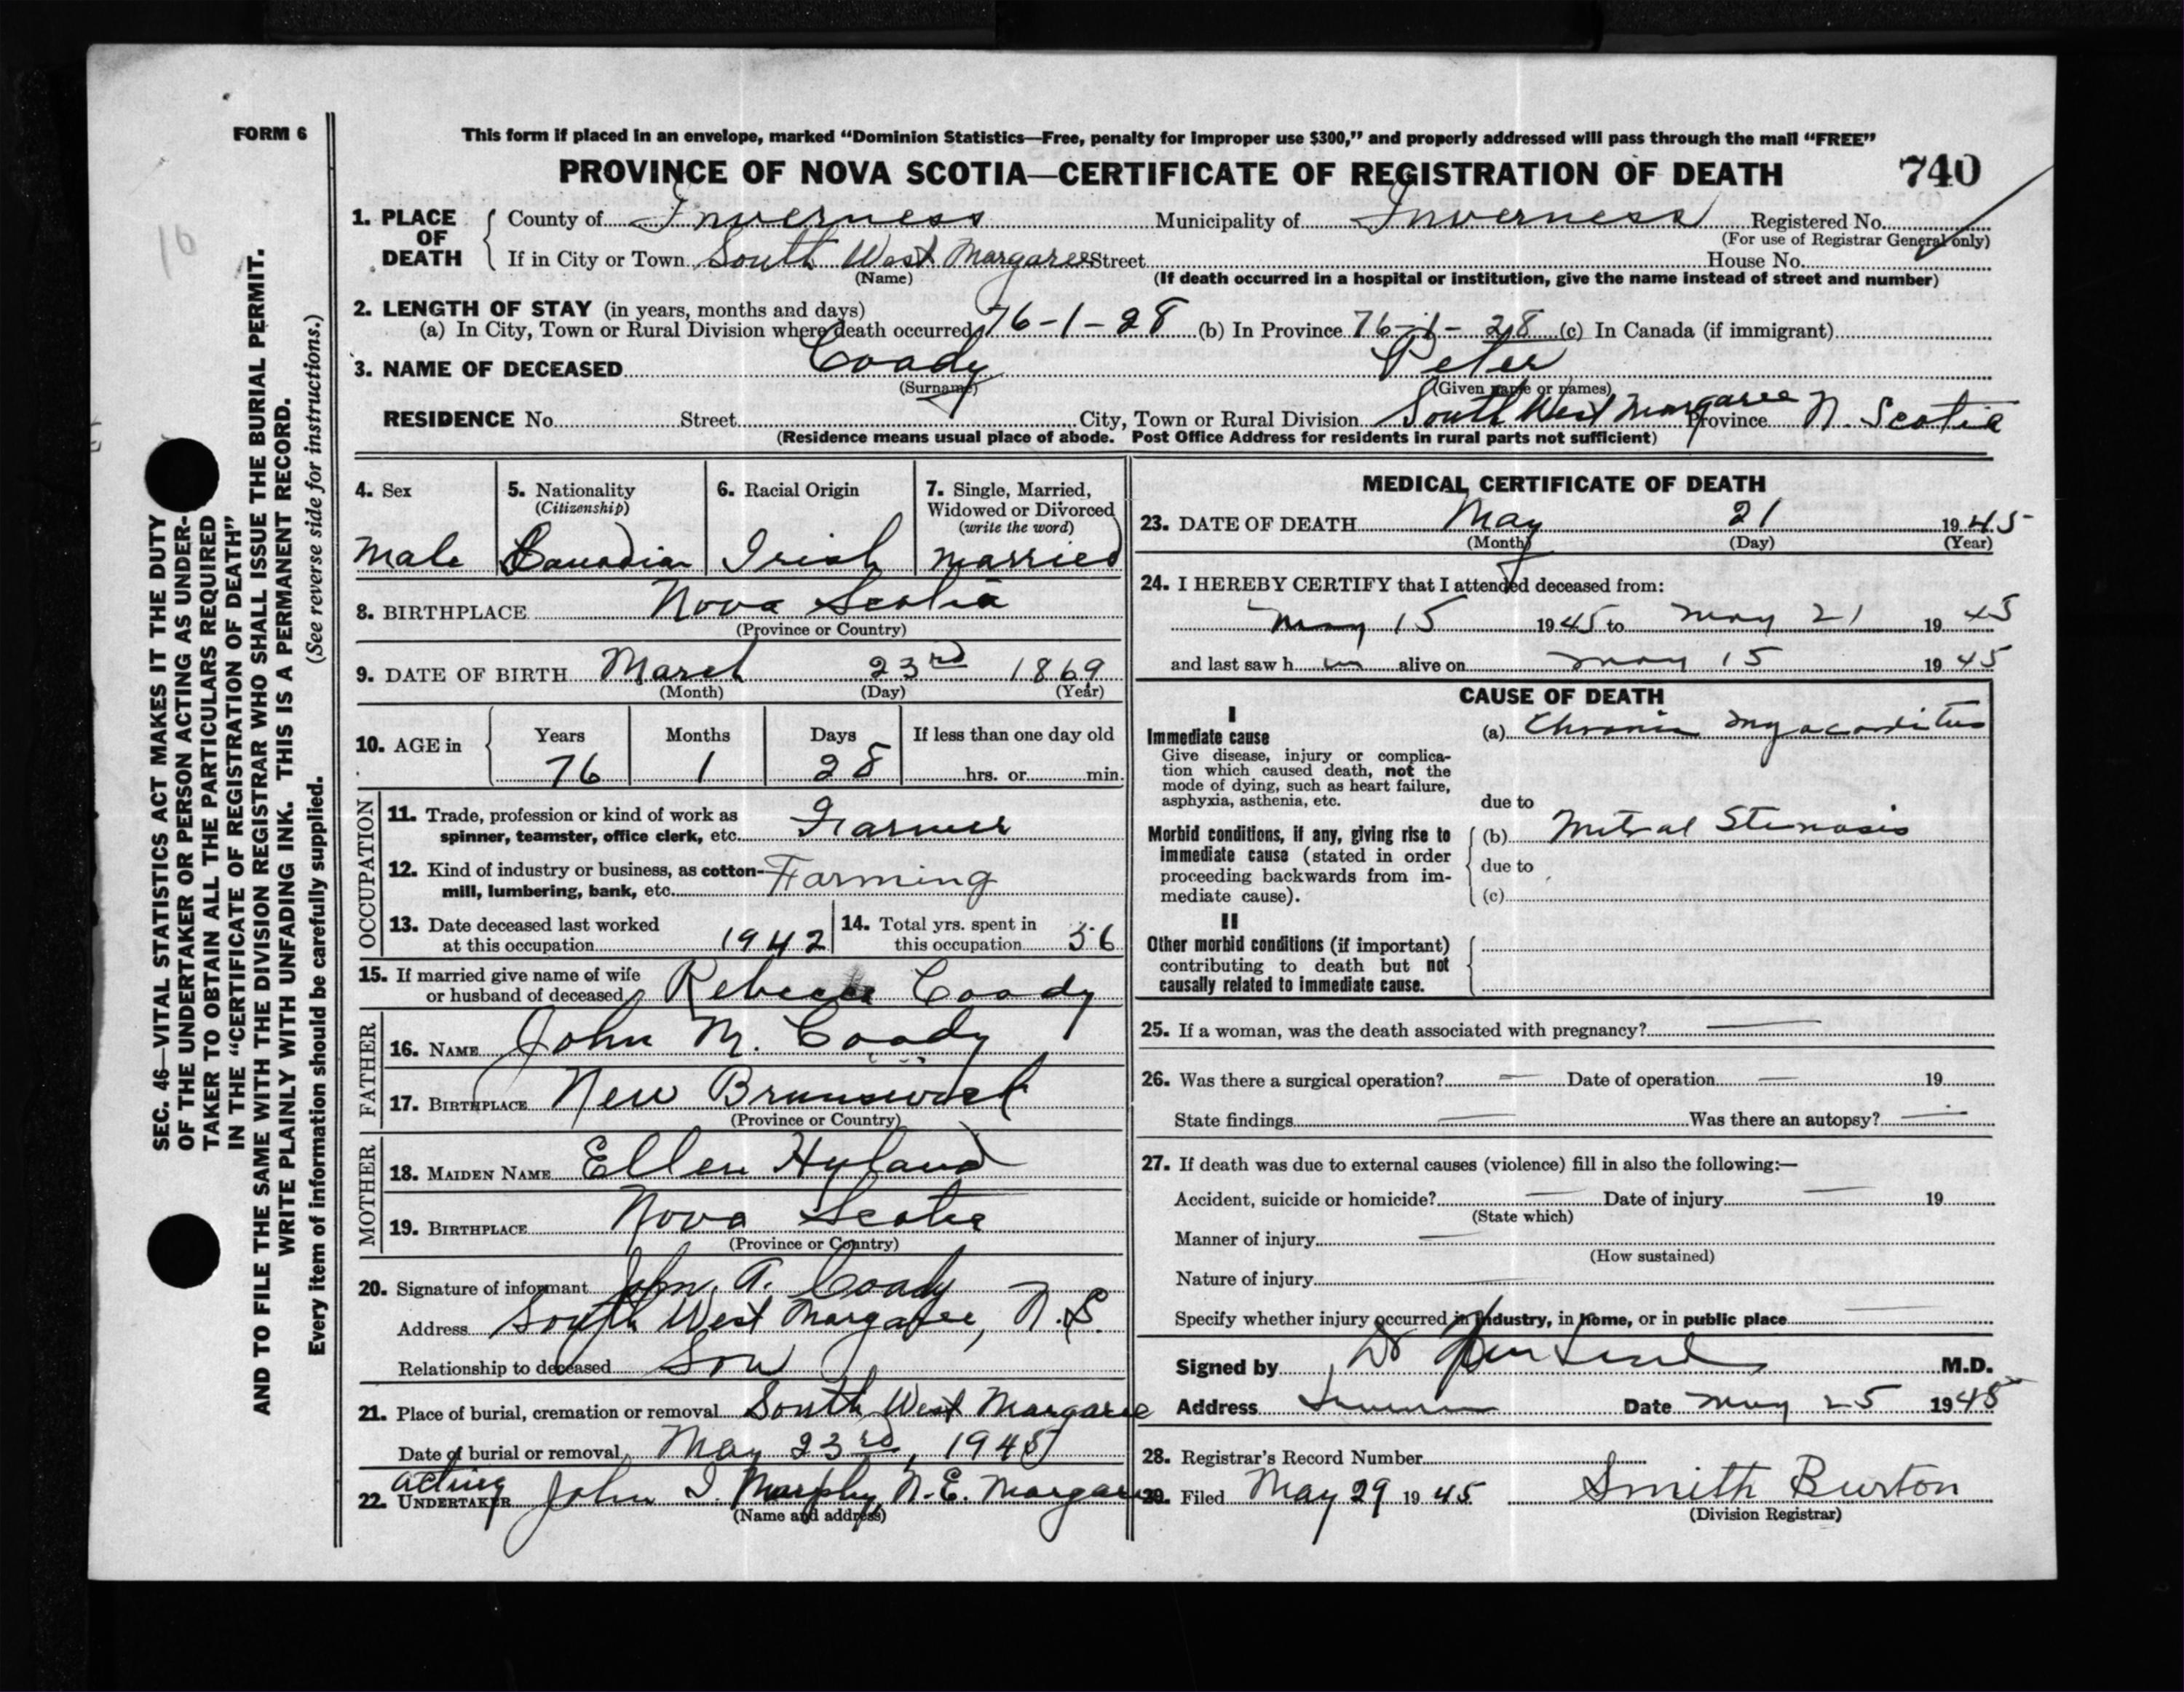 FORM 6
This form if placed in an envelope, marked “Dominion Statistics—Free, penalty for improper use $300,” and properly addressed will pass through the mail “FREE”
PROVINCE OF NOVA SCOTIA—CERTIFICATE OF REGISTRATION OF DEATH 740
16
SEC. 46—VITAL STATISTICS ACT MAKES IT THE DUTY
OF THE UNDERTAKER OR PERSON ACTING AS UNDER-
TAKER TO OBTAIN ALL THE PARTICULARS REQUIRED
IN THE “CERTIFICATE OF REGISTRATION OF DEATH”
AND TO FILE THE SAME WITH THE DIVISION REGISTRAR WHO SHALL ISSUE THE BURIAL PERMIT.
WRITE PLAINLY WITH UNFADING INK. THIS IS A PERMANENT RECORD.
Every item of information should be carefully supplied. (See reverse side for instructions.)
1. PLACE OF DEATH
County of Inverness Municipality of Inverness Registered No.
(For use of Registrar General only)
If in City or Town South West Margaree Street House No.
(Name) (If death occurred in a hospital or institution, give the name instead of street and number)
2. LENGTH OF STAY (in years, months and days)
(a) In City, Town or Rural Division where death occurred 76-1-28 (b) In Province 76-1-28 (c) In Canada (if immigrant)
3. NAME OF DECEASED Coady Peter
(Surname) (Given name or names)
RESIDENCE No. Street City, Town or Rural Division South West Margaree Province N. Scotia
(Residence means usual place of abode. Post Office Address for residents in rural parts not sufficient)
4. Sex 5. Nationality 6. Racial Origin 7. Single, Married,
(Citizenship) Widowed or Divorced
(write the word)
Male Canadian Irish married
8. BIRTHPLACE Nova Scotia
(Province or Country)
9. DATE OF BIRTH March 23rd 1869
(Month) (Day) (Year)
10. AGE in Years Months Days If less than one day old
76 1 28 hrs. or min.
OCCUPATION
11. Trade, profession or kind of work as
spinner, teamster, office clerk, etc. Farmer
12. Kind of industry or business, as cotton-
mill, lumbering, bank, etc. Farming
13. Date deceased last worked
at this occupation 1942
14. Total yrs. spent in
this occupation 56
15. If married give name of wife
or husband of deceased Rebecca Coady
FATHER
16. NAME John M. Coady
17. BIRTHPLACE New Brunswick
(Province or Country)
MOTHER
18. MAIDEN NAME Ellen Hyland
19. BIRTHPLACE Nova Scotia
(Province or Country)
20. Signature of informant John A. Coady
Address South West Margaree, N.S.
Relationship to deceased Son
21. Place of burial, cremation or removal South West Margaree
Date of burial or removal May 23rd, 1945
acting
22. UNDERTAKER John J. Murphy, N.E. Margaree
(Name and address)
MEDICAL CERTIFICATE OF DEATH
23. DATE OF DEATH May 21 1945
(Month) (Day) (Year)
24. I HEREBY CERTIFY that I attended deceased from:
May 15 1945 to May 21 1945
and last saw h im alive on May 15 1945
CAUSE OF DEATH
I
Immediate cause
Give disease, injury or complica-
tion which caused death, not the
mode of dying, such as heart failure,
asphyxia, asthenia, etc.
(a) Chronic myocarditis
due to
Morbid conditions, if any, giving rise to
immediate cause (stated in order
proceeding backwards from im-
mediate cause).
(b) Mitral Stenosis
due to
(c)
II
Other morbid conditions (if important)
contributing to death but not
causally related to immediate cause.
25. If a woman, was the death associated with pregnancy? —
26. Was there a surgical operation? — Date of operation — 19
State findings — Was there an autopsy? —
27. If death was due to external causes (violence) fill in also the following:—
Accident, suicide or homicide? — Date of injury — 19
(State which)
Manner of injury —
(How sustained)
Nature of injury —
Specify whether injury occurred in industry, in home, or in public place —
Signed by Dr M.D.
Address Date May 25 1945
28. Registrar’s Record Number
29. Filed May 29 1945 Smith Burton
(Division Registrar)